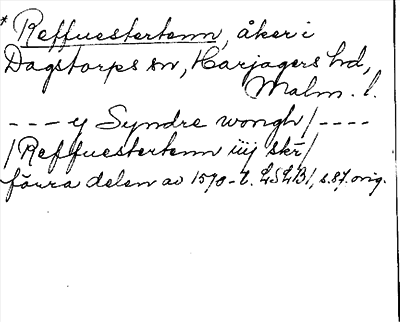 * Reffuestertenn, åker i
Dagstorps sn, Harjagers hd,
Malm. l.
---- y Syndre wongh/----
/Reffuestertenn iiij skr/
förra delen av 1570-t. LSLB1, s.87. orig.